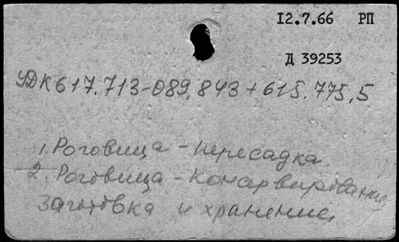 12.7.66 РП
Д 39253
УДК 617.713-089.843+615.775.5
1. Роговица - пересадка.
2. Роговица - консервирование,
заготовка и хранение.